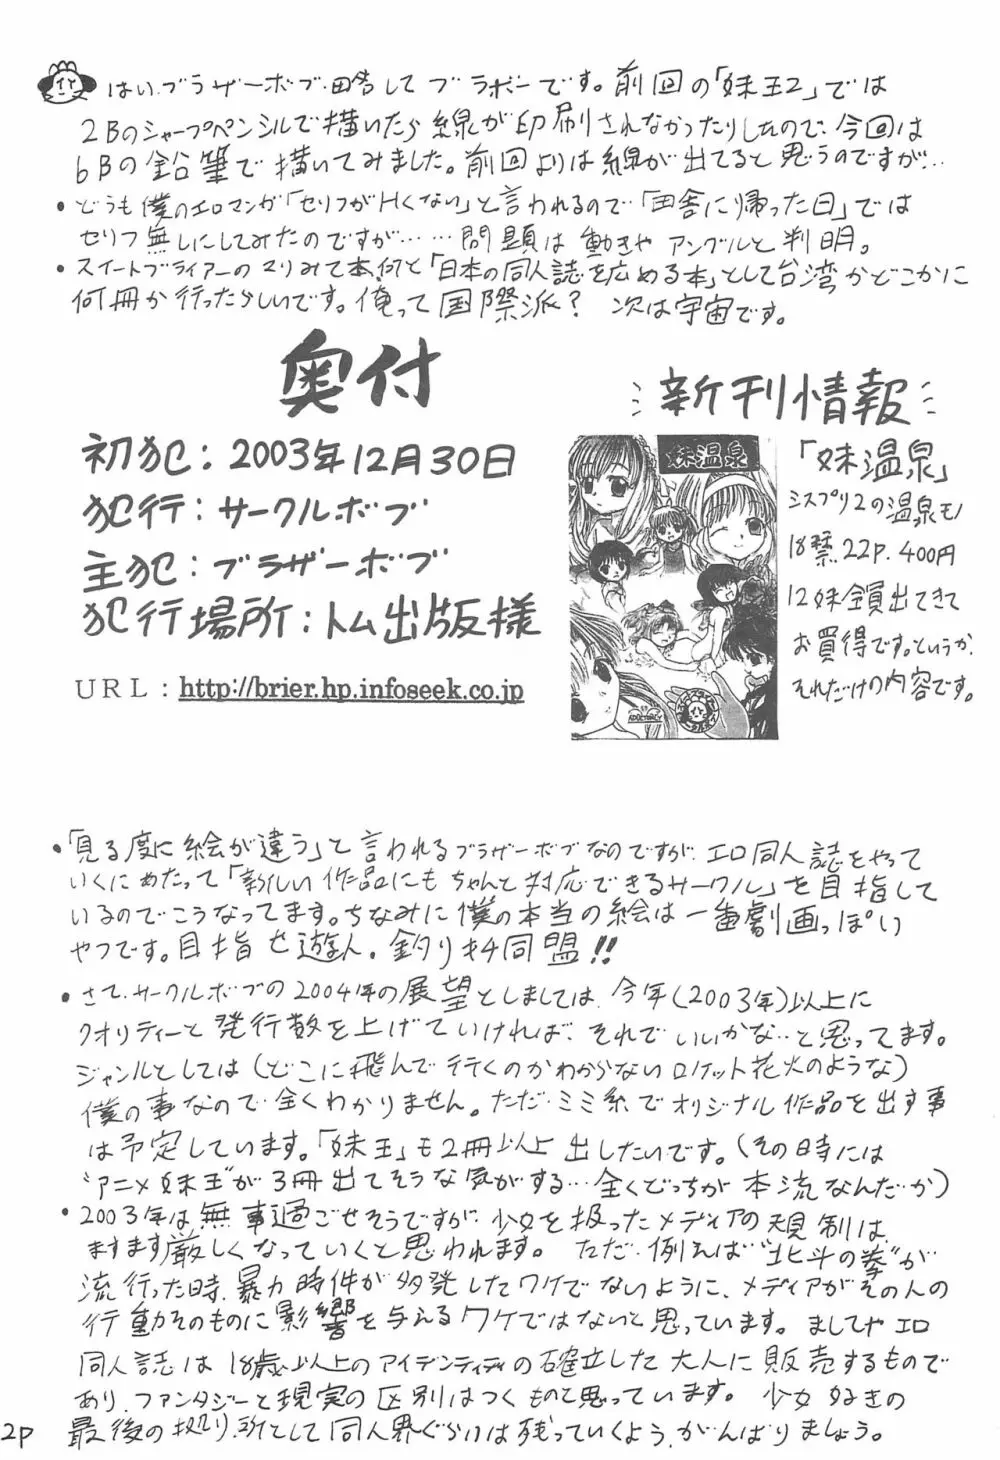 はい.ブラザーボブ.田舎してブラボーです。前回の「妹王2」では
2Bのシャープペンシルで描いたら線が印刷されなかったりしたので、今回は
6Bの鉛筆で描いてみました。前回よりは線が出てると思うのですが…
・どうも僕のエロマンガ「セリフがHくない」と言われるので「田舎に帰った日」では
セリフ無しにしてみたのですが……問題は動きやアングルと判明。
・スイートブライアーのマリみて本、何と「日本の同人誌を広める本」として台湾かどこかに
何冊か行ったらしいです。俺って国際派? 次は宇宙です。
奥付
初犯:2003年12月30日
犯行:サークルボブ
主犯:ブラザーボブ
犯行場所:トム出版様
URL:http://brier.hp.infoseek.co.jp
新刊情報
妹温泉
「妹温泉」
シスプリ2の温泉モノ
18禁.22P.400円
12妹全員出てきて
お買得です。というか、
それだけの内容です。
ADULT ONLY
・「見る度に絵が違う」と言われるブラザーボブなのですが、エロ同人誌をやって
いくにあたって「新しい作品にもちゃんと対応できるサークル」を目指して
いるのでこうなってます。ちなみに僕の本当の絵は一番劇画っぽい
やつです。目指せ遊人.釣りキチ同盟!!
・さて、サークルボブの2004年の展望としましては、今年(2003年)以上に
クオリティーと発行数を上げていければ、それでいいかな…と思ってます。
ジャンルとしては(どこに飛んで行くのかわからないロケット花火のような)
僕の事なので全くわかりません。ただ.ミミ系でオリジナル作品を出す事
は予定しています。「妹王」も2冊以上出したいです。(その時には
"アニメ妹王"が3冊出てそうな気がする…全くどっちが本流なんだか)
・2003年は無事過ごせそうですが、少女を扱ったメディアの規制は、
ますます厳しくなっていくと思われます。 ただ、例えば"北斗の拳"が
流行った時、暴力時件が多発したワケでないように、メディアがその人の
行動そのものに影響を与えるワケではないと思っています。ましてやエロ
同人誌は18歳以上のアイデンティティの確立した大人に販売するもので
あり、ファンタジーと現実の区別はつくものと思っています。 少女好きの
最後の拠り所として同人界ぐらいは残っていくよう、がんばりましょう。
2P